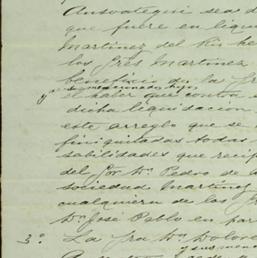 Ansoategui sea d
que fuere en liqui
Martinez del Rio he
los Sres Martinez
beneficio de la Sra
y sus mencionados hijos
el haber que contra
dicha liquidacion
este arreglo que se
finiquitadas todas
sabilidades que recip
del Sor Dn Pedro de la
sociedad Martinez
cualquiera de los S
Dn José Pablo en par
3º. La Sra Da Dolor
y sus men